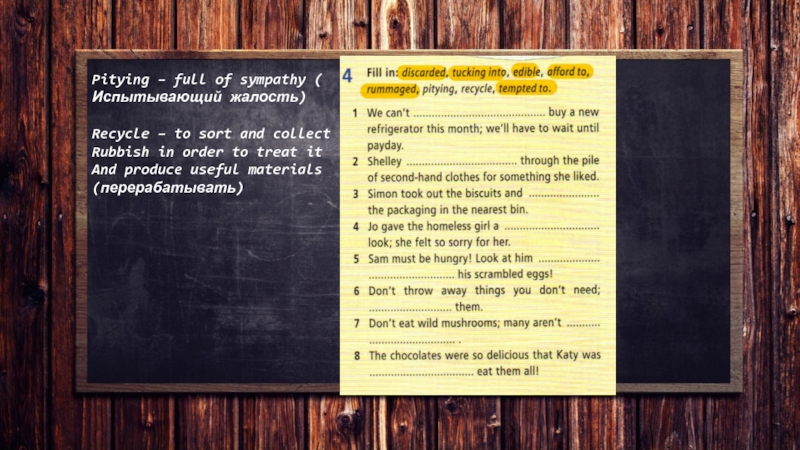 Pitying – full of sympathy (
Испытывающий жалость)
Recycle – to sort and collect
Rubbish in order to treat it
And produce useful materials
(перерабатывать)
4 Fill in: discarded, tucking into, edible, afford to,
rummaged, pitying, recycle, tempted to.
1 We can't ........................................ buy a new
refrigerator this month; we'll have to wait until
payday.
2 Shelley .................................. through the pile
of second-hand clothes for something she liked.
3 Simon took out the biscuits and ......................
the packaging in the nearest bin.
4 Jo gave the homeless girl a .............................
look; she felt so sorry for her.
5 Sam must be hungry! Look at him ...................
.......................... his scrambled eggs!
6 Don't throw away things you don't need;
.......................... them.
7 Don't eat wild mushrooms; many aren't ..........
.......................... .
8 The chocolates were so delicious that Katy was
................................ eat them all!